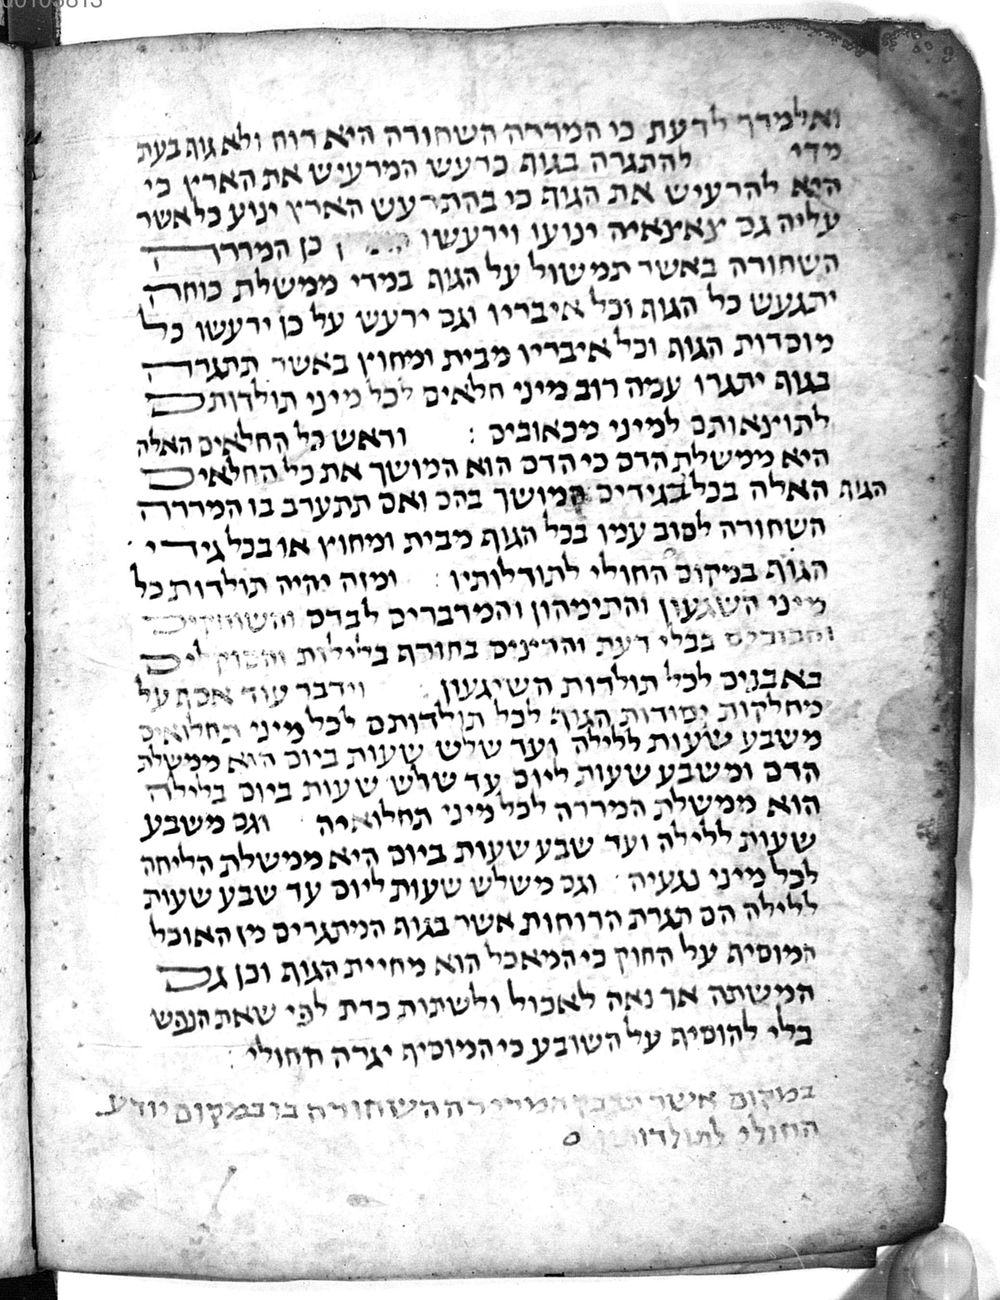 00105813
ואלמדך לדעת כי המררה השחורה היא רוח ולא גוף בעת
מדי להתגרה בגוף כרעש המרעיש את הארץ כי
היא להרעיש את הגוף כי בהתרעש הארץ ינוע כל אשר
עליה גם צאצאיה ינועו וירעשו כן המררה
השחורה באשר תמשול על הגוף במדי ממשלת כוחה
יתגעש כל הגוף וכל איבריו וגם ירעש על כן ירעשו כל
מוסדות הגוף וכל איבריו מבית ומחוץ באשר תתגרה
בגוף יתגרו עמה רוב מיני חלאים לכל מיני תולדותם
לתוצאותם למיני מכאובים : וראש כל החלאים האלה
היא ממשלת הדם כי הדם הוא המושך את כל החלאים
הגוף האלה בכל בגידים המושך בהם ואם תתערב בו המררה
השחורה לסוב עמו בכל הגוף מבית ומחוץ או בכל גידי
הגוף במקום החולי לתודלותיו : ומזה יהיה תולדות כל
מיני השגעון והתימהון והמדברים לבדם
בבלי דעת בחורף בלילות
באבנים לכל תולדות השיגעון וידבר עוד אסף על
מחלקות יסודות הגוף לכל תולדותם לכל מיני תחלואים
משבע שעות ללילה ועד שלש שעות ביום הוא ממשלת
הדם ומשבע שעות ליום עד שלש שעות ביום בלילה
הוא ממשלת המררה לכל מיני תחלואיה וגם משבע
שעות ללילה ועד שבע שעות ביום היא ממשלת הליחה
לכל מיני נגעיה וגם משלש שעות ליום עד שבע שעות
ללילה הם תגרת הרוחות אשר בגוף המתגרים מן האוכל
המוסיף על החוק כי המאכל הוא מחיית הגוף וכן גם
המשתה אך נאה לאכול ולשתות כדת לפי שאת הנפש
בלי להוסיף על השובע כי המוסיף יגרה תחולי
במקום אשר המררה השחורה בו במקום יודע
החולי